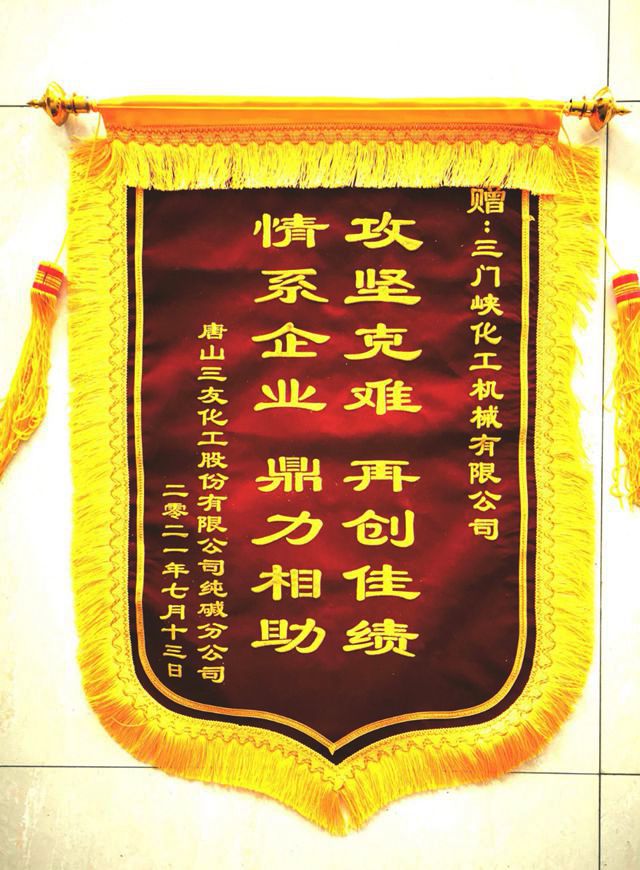 赠：三门峡化工机械有限公司
攻坚克难 再创佳绩
情系企业 鼎力相助
唐山三友化工股份有限公司纯碱分公司
二零二一年七月十三日